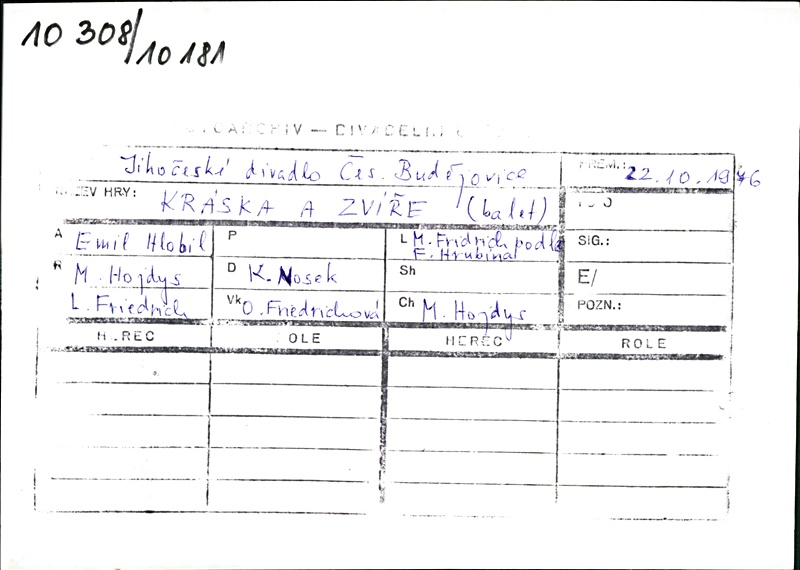 10 308/10 181
Jihočeské divadlo Čes. Budějovice
PREM.: 22.10.1976
NÁZEV HRY: KRÁSKA A ZVÍŘE (balet)
A Emil Hlobil
P
L M. Fridrich podle F. Hrubína
SIG.:
R M. Hojdys
D K. Nosek
Sh
E/
L. Friedrich
Vk O. Friedrichová
Ch M. Hojdys
POZN.:
HEREC
ROLE
HEREC
ROLE